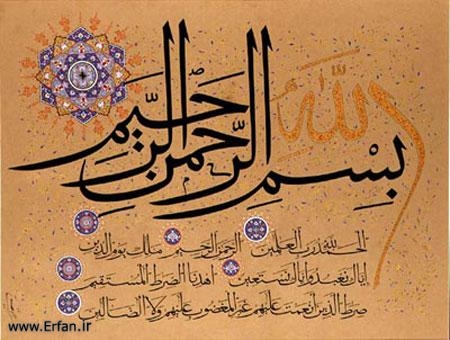 بِسْمِ اللهِ الرَّحْمنِ الرَّحِيمِ
الحمد لله رب العلمين الرحمن الرحيم ملك يوم الدين
اياك نعبد و اياك نستعين اهدنا الصرط المستقيم
صرط الذين انعمت عليهم غير المغضوب عليهم ولا الضالين
www.Erfan.ir